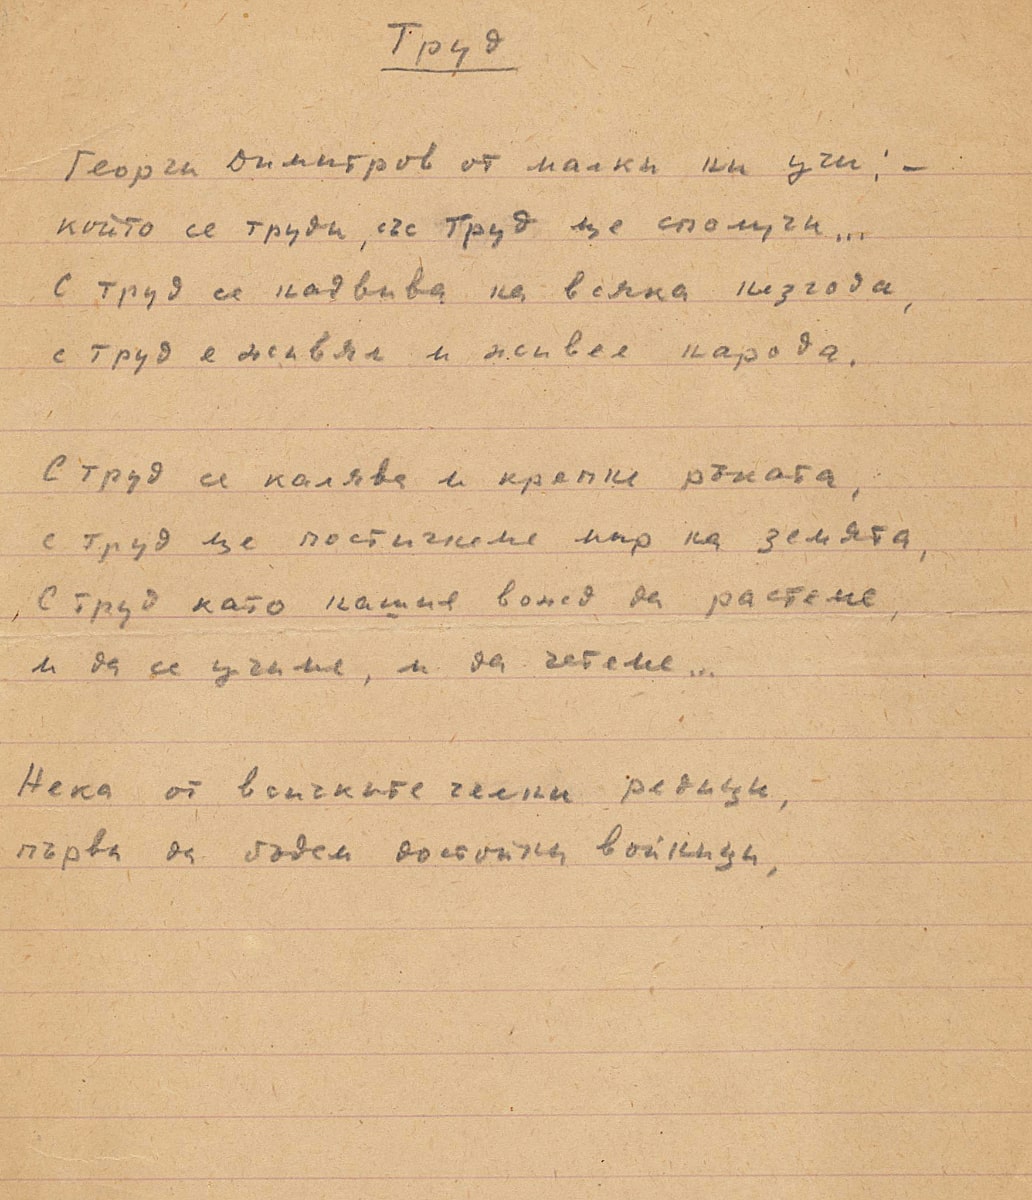 Труд
Георги Димитров от малки ни учи: –
който се труди, със Труд ще сполучи...
С труд се надвива на всяка незгода,
с труд е живял и живее народа.
С труд се калява и крепне ръката,
с труд ще постигнеме мир на земята,
С труд като нашия вожд да растеме,
и да се учиме, и да четеме...
Нека от всичките челни редици,
първи да бъдем достойни войници,